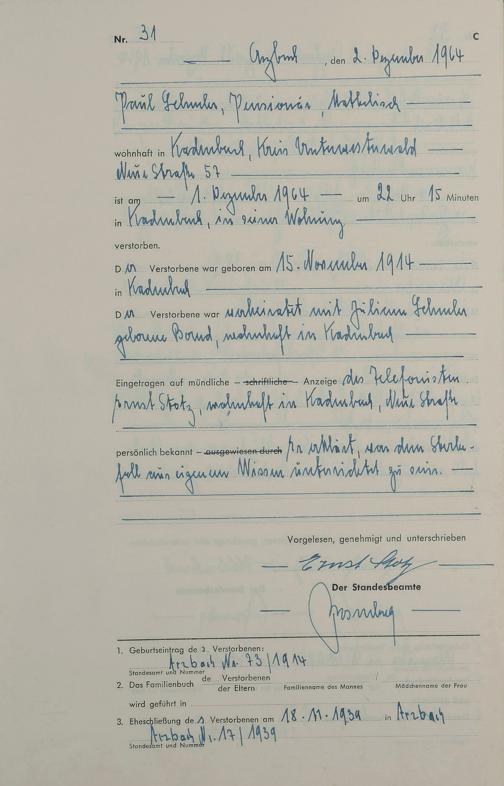 Nr. 31 C
Arzbach, den 2. Dezember 1964
Paul Lehmler, Pensionär, katholisch
wohnhaft in Kadenbach, Kreis Unterwesterwald
Neue Straße 57
ist am 1. Dezember 1964 um 22 Uhr 15 Minuten
in Kadenbach, in seiner Wohnung
verstorben.
Der Verstorbene war geboren am 15. November 1914
in Kadenbach
Der Verstorbene war verheiratet mit Juliana Lehmler
geborene, wohnhaft in Kadenbach
Eingetragen auf mündliche – schriftliche – Anzeige des Telefonisten
Ernst Stotz, wohnhaft in Kadenbach, Neue Straße
persönlich bekannt – ausgewiesen durch Er erklärt, von dem Sterbe-
fall aus eigenem Wissen unterrichtet zu sein.
Vorgelesen, genehmigt und unterschrieben
Ernst Stotz
Der Standesbeamte
1. Geburtseintrag des Verstorbenen:
Arzbach Nr. 73/1914
Standesamt und Nummer
2. Das Familienbuch de Verstorbenen
der Eltern Familienname des Mannes / Mädchenname der Frau
wird geführt in
3. Eheschließung des Verstorbenen am 18.11.1939 in Arzbach
Arzbach Nr. 17/1939
Standesamt und Nummer